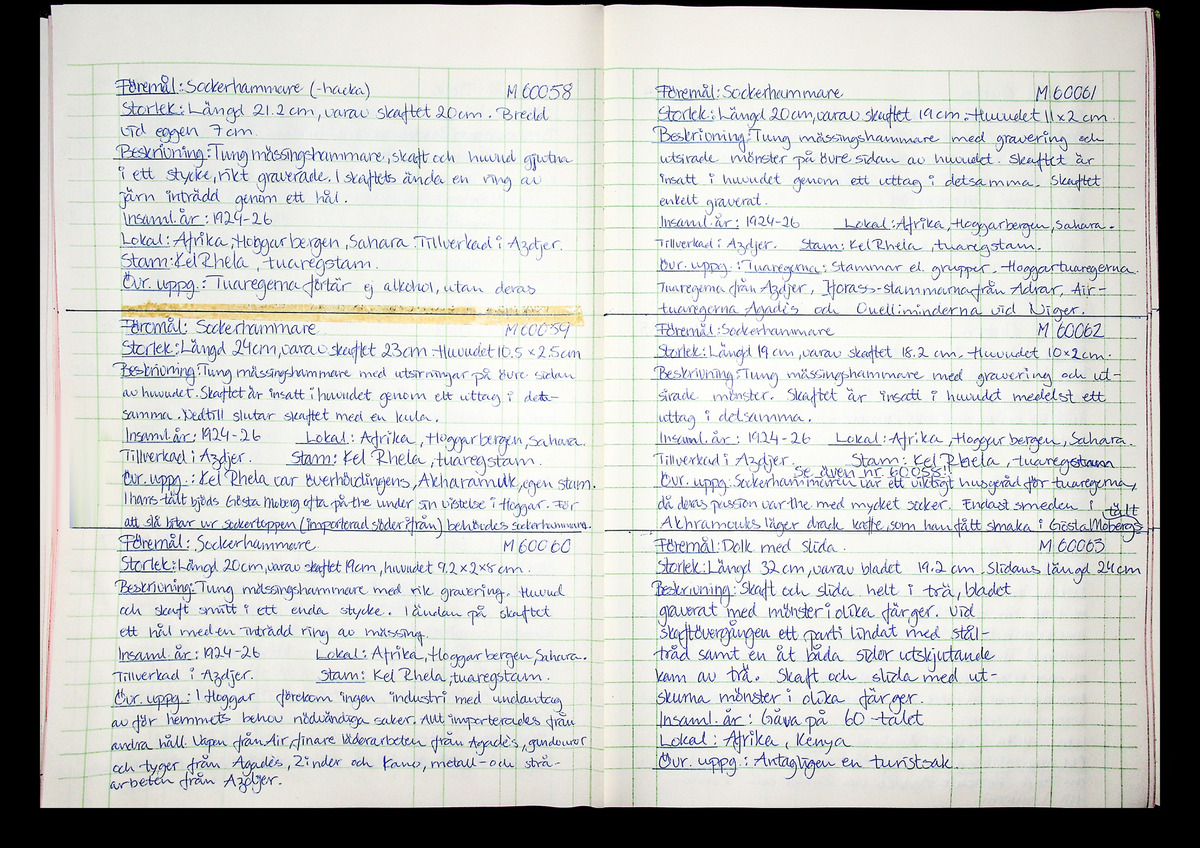 Föremål: Sockerhammare (-hacka) M 60058
Storlek: Längd 21.2 cm, varav skaftet 20 cm. Bredd
vid eggen 7 cm.
Beskrivning: Tung mässingshammare, skaft och huvud gjutna
i ett stycke, rikt graverade. I skaftets ända en ring av
järn inträdd genom ett hål.
Insaml.år: 1924-26
Lokal: Afrika, Hoggarbergen, Sahara. Tillverkad i Azdjer.
Stam: Kel Rhela, tuaregstam.
Övr. uppg.: Tuaregerna förtär ej alkohol, utan deras
Föremål: Sockerhammare M 60059
Storlek: Längd 24 cm, varav skaftet 23 cm. Huvudet 10.5 × 2.5 cm
Beskrivning: Tung mässingshammare med utsirningar på övre sidan
av huvudet. Skaftet är insatt i huvudet genom ett uttag i det-
samma. Nedtill slutar skaftet med en kula.
Insaml.år: 1924-26 Lokal: Afrika, Hoggarbergen, Sahara.
Tillverkad i Azdjer. Stam: Kel Rhela, tuaregstam.
Övr. uppg.: Kel Rhela var överhövdingens, Akharamuk, egen stam.
I hans tält bjöds Gösta Moberg ofta på the under sin vistelse i Hoggar. För
att slå bitar ur sockertoppen (importerad söder ifrån) behövdes sockerhammare.
Föremål: Sockerhammare. M 60060
Storlek: Längd 20 cm, varav skaftet 19 cm, huvudet 9.2×2×5 cm.
Beskrivning: Tung mässingshammare med rik gravering. Huvud
och skaft smitt i ett enda stycke. I ändan på skaftet
ett hål med en inträdd ring av mässing.
Insaml.år: 1924-26 Lokal: Afrika, Hoggarbergen, Sahara.
Tillverkad i Azdjer. Stam: Kel Rhela, tuaregstam.
Övr. uppg.: I Hoggar förekom ingen industri med undantag
av för hemmets behov nödvändiga saker. Allt importerades från
andra håll. Vapen från Air, finare läderarbeten från Agadès, gandouror
och tyger från Agadès, Zinder och Kano, metall- och strå-
arbeten från Azdjer.
Föremål: Sockerhammare M 60061
Storlek: Längd 20 cm, varav skaftet 19 cm. Huvudet 11×2 cm.
Beskrivning: Tung mässingshammare med gravering och
utsirade mönster på övre sidan av huvudet. Skaftet är
insatt i huvudet genom ett uttag i detsamma. Skaftet
enkelt graverat.
Insaml.år: 1924-26 Lokal: Afrika, Hoggarbergen, Sahara.
Tillverkad i Azdjer. Stam: Kel Rhela, tuaregstam.
Övr. uppg.: Tuaregerna: Stammar el. grupper. Hoggartuaregerna.
Tuaregerna från Azdjer, Iforass-stammarna från Adrar, Air-
tuaregerna Agadès och Ouelliminderna vid Niger.
Föremål: Sockerhammare M 60062
Storlek: Längd 19 cm, varav skaftet 18.2 cm. Huvudet 10×2 cm.
Beskrivning: Tung mässingshammare med gravering och ut-
sirade mönster. Skaftet är insatt i huvudet medelst ett
uttag i detsamma.
Insaml.år: 1924-26 Lokal: Afrika, Hoggarbergen, Sahara.
Tillverkad i Azdjer. Stam: Kel Rhela, tuaregstam
Se även nr. 60058!!
Övr. uppg: Sockerhammaren var ett viktigt husgeråd för tuaregerna,
då deras passion var the med mycket socker. Endast smeden i
Akhramouks läger drack kaffe, som han fått smaka i Gösta Mobergs tält
Föremål: Dolk med slida. M 60063
Storlek: Längd 32 cm, varav bladet 19.2 cm. Slidans längd 24 cm
Beskrivning: Skaft och slida helt i trä, bladet
graverat med mönster i olika färger. Vid
skaftövergången ett parti lindat med stål-
tråd samt en åt båda sidor utskjutande
kam av trä. Skaft och slida med ut-
skurna mönster i olika färger.
Insaml.år: Gåva på 60-talet
Lokal: Afrika, Kenya
Övr. uppg.: Antagligen en turistsak.